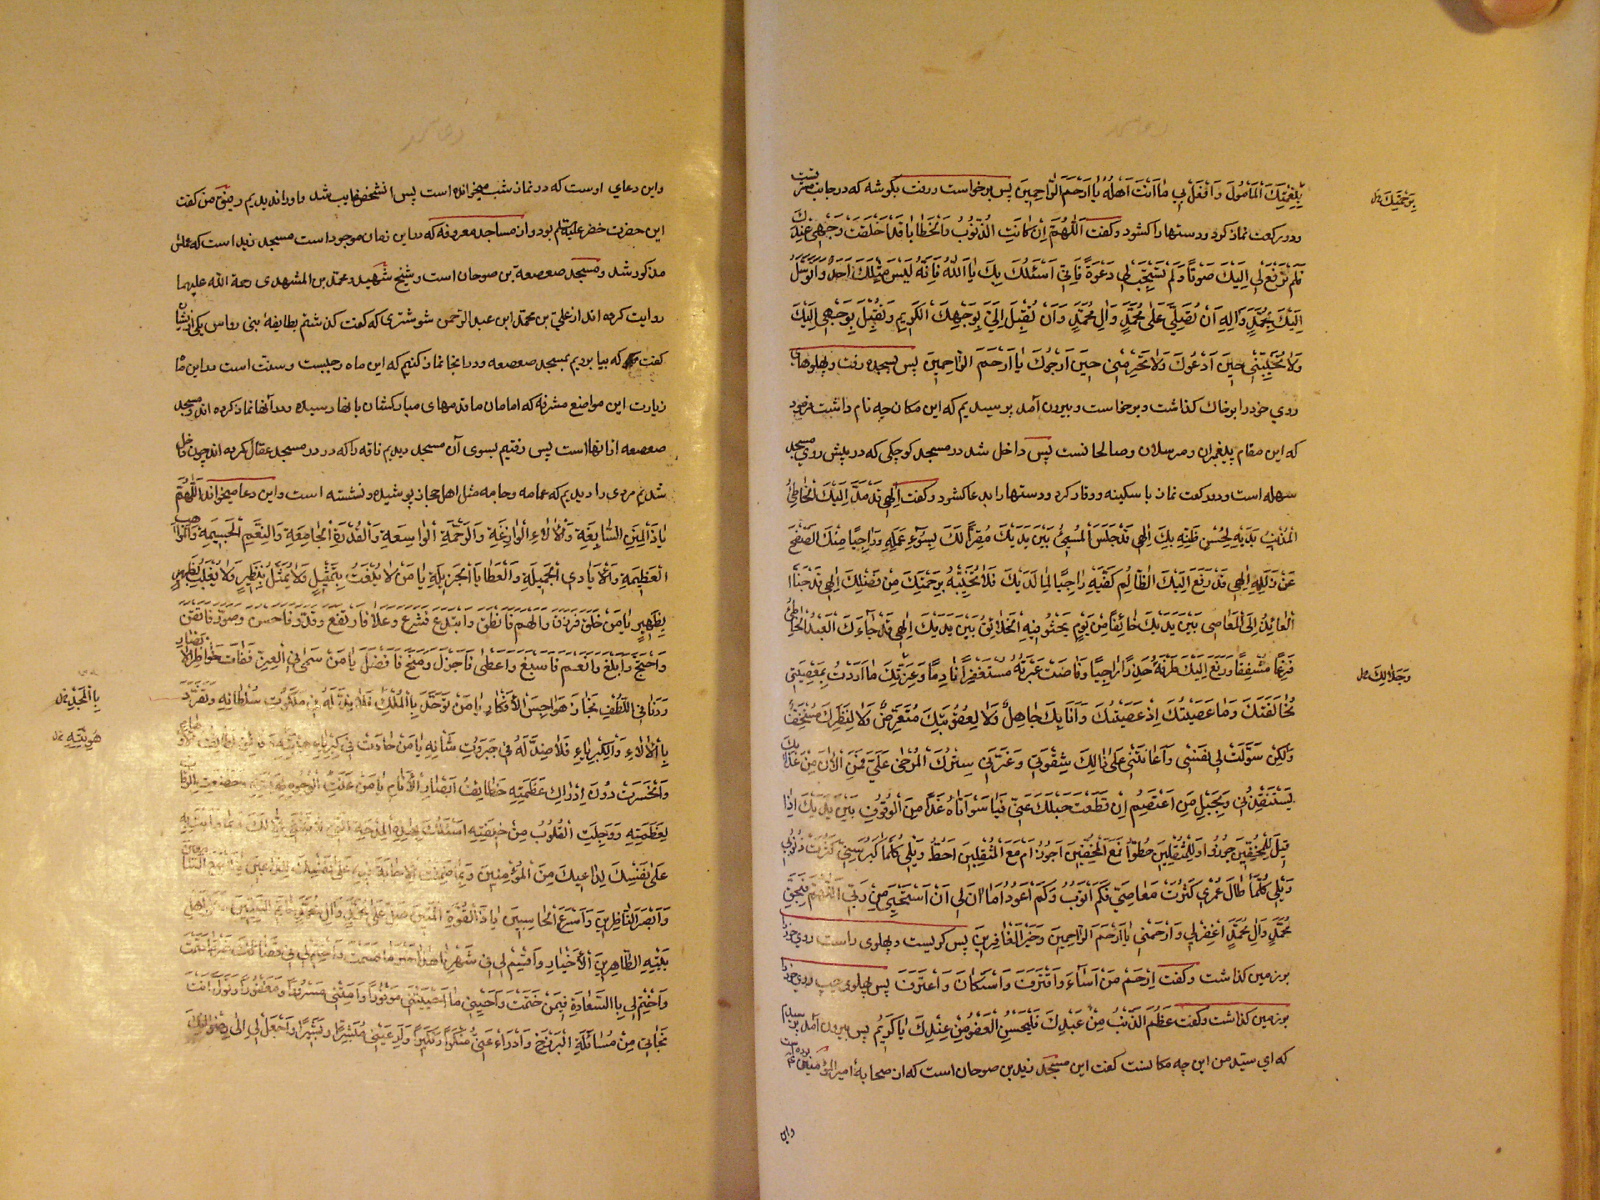 بِنِعْمَتِكَ الْمَأْمُولَ وَافْعَلْ بِي مَا أَنْتَ أَهْلُهُ يَا أَرْحَمَ الرَّاحِمِينَ پس برخواست و رفت بگوشه که در جانب
بِرَحْمَتِكَ
و دو رکعت نماز کرد و دستها را کشود و کفت اَللّٰهُمَّ إِنْ كَانَتِ الذُّنُوبُ وَالْخَطَايَا قَدْ أَخْلَقَتْ وَجْهِي عِنْدَكَ
فَلَمْ تَرْفَعْ لِي إِلَيْكَ صَوْتًا وَلَمْ تَسْتَجِبْ لِي دَعْوَةً فَإِنِّي أَسْئَلُكَ بِكَ يَا اَللّٰهُ فَإِنَّهُ لَيْسَ مِثْلَكَ أَحَدٌ وَأَتَوَسَّلُ
إِلَيْكَ بِمُحَمَّدٍ وَآلِهِ أَنْ تُصَلِّيَ عَلَى مُحَمَّدٍ وَآلِ مُحَمَّدٍ وَأَنْ تُقْبِلَ إِلَيَّ بِوَجْهِكَ الْكَرِيمِ وَتُقْبِلَ بِوَجْهِي إِلَيْكَ
وَلَا تُخَيِّبْنِي حِينَ أَدْعُوكَ وَلَا تَحْرِمْنِي حِينَ أَرْجُوكَ يَا أَرْحَمَ الرَّاحِمِينَ پس بسجده رفت و پهلوهای
روی خود را بر خاک کذاشت و برخاست و بیرون آمد پرسیدیم که این مکان چه نام داشت فرمود
که این مقام پیغمبران و مرسلان و صالحانست پس داخل شد در مسجد کوچکی که در پیش روی مسجد
سهله است و دو رکعت نماز با سکینه و وقار کرد و دستها را بدعا کشود و کفت إِلٰهِي قَدْ مَدَّ إِلَيْكَ الْخَاطِئُ
الْمُذْنِبُ يَدَيْهِ لِحُسْنِ ظَنِّهِ بِكَ إِلٰهِي قَدْ جَلَسَ الْمُسِيءُ بَيْنَ يَدَيْكَ مُقِرًّا لَكَ بِسُوءِ عَمَلِهِ وَرَاجِيًا مِنْكَ الصَّفْحَ
عَنْ زَلَلِهِ إِلٰهِي قَدْ رَفَعَ إِلَيْكَ الظَّالِمُ كَفَّيْهِ رَاجِيًا لِمَا لَدَيْكَ فَلَا تُخَيِّبْهُ بِرَحْمَتِكَ مِنْ فَضْلِكَ إِلٰهِي قَدْ جَثَا
الْعَائِدُ إِلَى الْمَعَاصِي بَيْنَ يَدَيْكَ خَائِفًا مِنْ يَوْمٍ يَجْثُو فِيهِ الْخَلَائِقُ بَيْنَ يَدَيْكَ إِلٰهِي قَدْ جَاءَكَ الْعَبْدُ الْخَاطِئُ
فَزِعًا مُشْفِقًا وَرَفَعَ إِلَيْكَ طَرْفَهُ حَذِرًا رَاجِيًا وَفَاضَتْ عَبْرَتُهُ مُسْتَغْفِرًا نَادِمًا وَعِزَّتِكَ مَا أَرَدْتُ بِمَعْصِيَتِي
وَجَلَالِكَ
مُخَالَفَتَكَ وَمَا عَصَيْتُكَ إِذْ عَصَيْتُكَ وَأَنَا بِكَ جَاهِلٌ وَلَا لِعُقُوبَتِكَ مُتَعَرِّضٌ وَلَا لِنَظَرِكَ مُسْتَخِفٌّ
وَلٰكِنْ سَوَّلَتْ لِي نَفْسِي وَأَعَانَتْنِي عَلَى ذٰلِكَ شِقْوَتِي وَغَرَّنِي سِتْرُكَ الْمُرْخَى عَلَيَّ فَمِنَ الْآنَ مِنْ عَذَابِكَ
يَسْتَنْقِذُنِي وَبِحَبْلِ مَنْ أَعْتَصِمُ إِنْ قَطَعْتَ حَبْلَكَ عَنِّي فَيَا سَوْأَتَاهُ غَدًا مِنَ الْوُقُوفِ بَيْنَ يَدَيْكَ إِذَا
قِيلَ لِلْمُخِفِّينَ جُوزُوا وَلِلْمُثْقِلِينَ حُطُّوا أَفَمَعَ الْمُخِفِّينَ أَجُوزُ أَمْ مَعَ الْمُثْقِلِينَ أَحُطُّ وَيْلِي كُلَّمَا كَبُرَ سِنِّي كَثُرَتْ ذُنُوبِي
وَيْلِي كُلَّمَا طَالَ عُمْرِي كَثُرَتْ مَعَاصِيَّ فَكَمْ أَتُوبُ وَكَمْ أَعُودُ أَمَا آنَ لِي أَنْ أَسْتَحْيِيَ مِنْ رَبِّي اَللّٰهُمَّ فَبِحَقِّ
مُحَمَّدٍ وَآلِ مُحَمَّدٍ اغْفِرْ لِي وَارْحَمْنِي يَا أَرْحَمَ الرَّاحِمِينَ وَخَيْرَ الْغَافِرِينَ پس کریست و پهلوی راست روی خود
بر زمین کذاشت و کفت اِرْحَمْ مَنْ أَسَاءَ وَاقْتَرَفَ وَاسْتَكَانَ وَاعْتَرَفَ پس پهلوی چپ روی خود
بر زمین کذاشت و کفت عَظُمَ الذَّنْبُ مِنْ عَبْدِكَ فَلْيَحْسُنِ الْعَفْوُ مِنْ عِنْدِكَ يَا كَرِيمُ پس بیرون آمد پرسیدم
که ای سید من این چه مکانست کفت این مسجد زید بن صوحان است که از صحابهٔ امیر المؤمنین بوده است
واین
واین دعای اوست که در نماز شب میخوانده است پس آنشخص غایب شد و او را ندیدیم رفیق من کفت
این حضرت خضر علیه السلم بود و از مساجد معروفه که در این زمان موجود است مسجد زید است که
مذکور شد و مسجد صعصعة بن صوحان است و شیخ شهید و محمد بن المشهدی رحمة الله علیهما
روایت کرده اند از علی بن محمد ابن عبد الرحمن شوشتری که کفت کذشتم بطایفهٔ بنی رواس یکی از ایشان
کفت که بیا برویم بمسجد صعصعه و در آنجا نماز کنیم که این ماه رجبست و سنت است در این ماه
زیارت این مواضع مشرفه که امامان ما قدمهای مبارکشان بآنها رسیده و در آنها نماز کرده اند و مسجد
صعصعه از آنها است پس رفتیم بسوی آن مسجد دیدیم ناقه را که در در مسجد عقال کرده اند چون داخل
شدیم مردی را دیدیم که عمامه و جامه مثل اهل حجاز پوشیده و نشسته است و این دعا میخواند اَللّٰهُمَّ
يَا ذَا الْمِنَنِ السَّابِغَةِ وَالْآلَاءِ الْوَازِعَةِ وَالرَّحْمَةِ الْوَاسِعَةِ وَالْقُدْرَةِ الْجَامِعَةِ وَالنِّعَمِ الْجَسِيمَةِ وَالْمَوَاهِبِ
الْعَظِيمَةِ وَالْأَيَادِي الْجَمِيلَةِ وَالْعَطَايَا الْجَزِيلَةِ يَا مَنْ لَا يُنْعَتُ بِتَمْثِيلٍ وَلَا يُمَثَّلُ بِنَظِيرٍ وَلَا يُغْلَبُ
بِظَهِيرٍ يَا مَنْ خَلَقَ فَرَزَقَ وَأَلْهَمَ فَأَنْطَقَ وَابْتَدَعَ فَشَرَعَ وَعَلَا فَارْتَفَعَ وَقَدَّرَ فَأَحْسَنَ وَصَوَّرَ فَأَتْقَنَ
وَاحْتَجَّ فَأَبْلَغَ وَأَنْعَمَ فَأَسْبَغَ وَأَعْطَى فَأَجْزَلَ وَمَنَحَ فَأَفْضَلَ يَا مَنْ سَمَى فِي الْعِزِّ فَفَاتَ خَوَاطِرَ الْأَبْصَارِ
وَدَنَا فِي اللُّطْفِ فَجَازَ هَوَاجِسَ الْأَفْكَارِ يَا مَنْ تَوَحَّدَ بِالْمُلْكِ فَلَا نِدَّ لَهُ فِي مَلَكُوتِ سُلْطَانِهِ وَتَفَرَّدَ
بِالْمَجْدِ
بِالْآلَاءِ وَالْكِبْرِيَاءِ فَلَا ضِدَّ لَهُ فِي جَبَرُوتِ شَأْنِهِ يَا مَنْ حَارَتْ فِي كِبْرِيَاءِ هَيْبَتِهِ دَقَائِقُ لَطَائِفِ الْأَوْهَامِ
وَانْحَسَرَتْ دُونَ إِدْرَاكِ عَظَمَتِهِ خَطَائِفُ أَبْصَارِ الْأَنَامِ يَا مَنْ عَنَتِ الْوُجُوهُ لِهَيْبَتِهِ وَخَضَعَتِ الرِّقَابُ
لِعَظَمَتِهِ وَوَجِلَتِ الْقُلُوبُ مِنْ خِيفَتِهِ أَسْئَلُكَ بِهٰذِهِ الْمِدْحَةِ الَّتِي لَا تَنْبَغِي إِلَّا لَكَ وَبِمَا وَأَيْتَ بِهِ
عَلَى نَفْسِكَ لِدَاعِيكَ مِنَ الْمُؤْمِنِينَ وَبِمَا ضَمِنْتَ الْإِجَابَةَ فِيهِ عَلَى نَفْسِكَ لِلدَّاعِينَ يَا أَسْمَعَ السَّامِعِينَ
وَأَبْصَرَ النَّاظِرِينَ وَأَسْرَعَ الْحَاسِبِينَ يَا ذَا الْقُوَّةِ الْمَتِينَ صَلِّ عَلَى مُحَمَّدٍ خَاتَمِ النَّبِيِّينَ وَعَلَى أَهْلِ
بَيْتِهِ الطَّاهِرِينَ الْأَخْيَارِ وَاقْسِمْ لِي فِي شَهْرِنَا هٰذَا خَيْرَ مَا قَسَمْتَ وَاحْتِمْ لِي فِي قَضَائِكَ خَيْرَ مَا حَتَمْتَ
وَاخْتِمْ لِي بِالسَّعَادَةِ فِيمَنْ خَتَمْتَ وَأَحْيِنِي مَا أَحْيَيْتَنِي مَوْفُورًا وَأَمِتْنِي مَسْرُورًا وَمَغْفُورًا وَتَوَلَّ أَنْتَ
نَجَاتِي مِنْ مُسَائَلَةِ الْبَرْزَخِ وَادْرَأْ عَنِّي مُنْكَرًا وَنَكِيرًا وَأَرِ عَيْنِي مُبَشِّرًا وَبَشِيرًا وَاجْعَلْ لِي إِلَى رِضْوَانِكَ